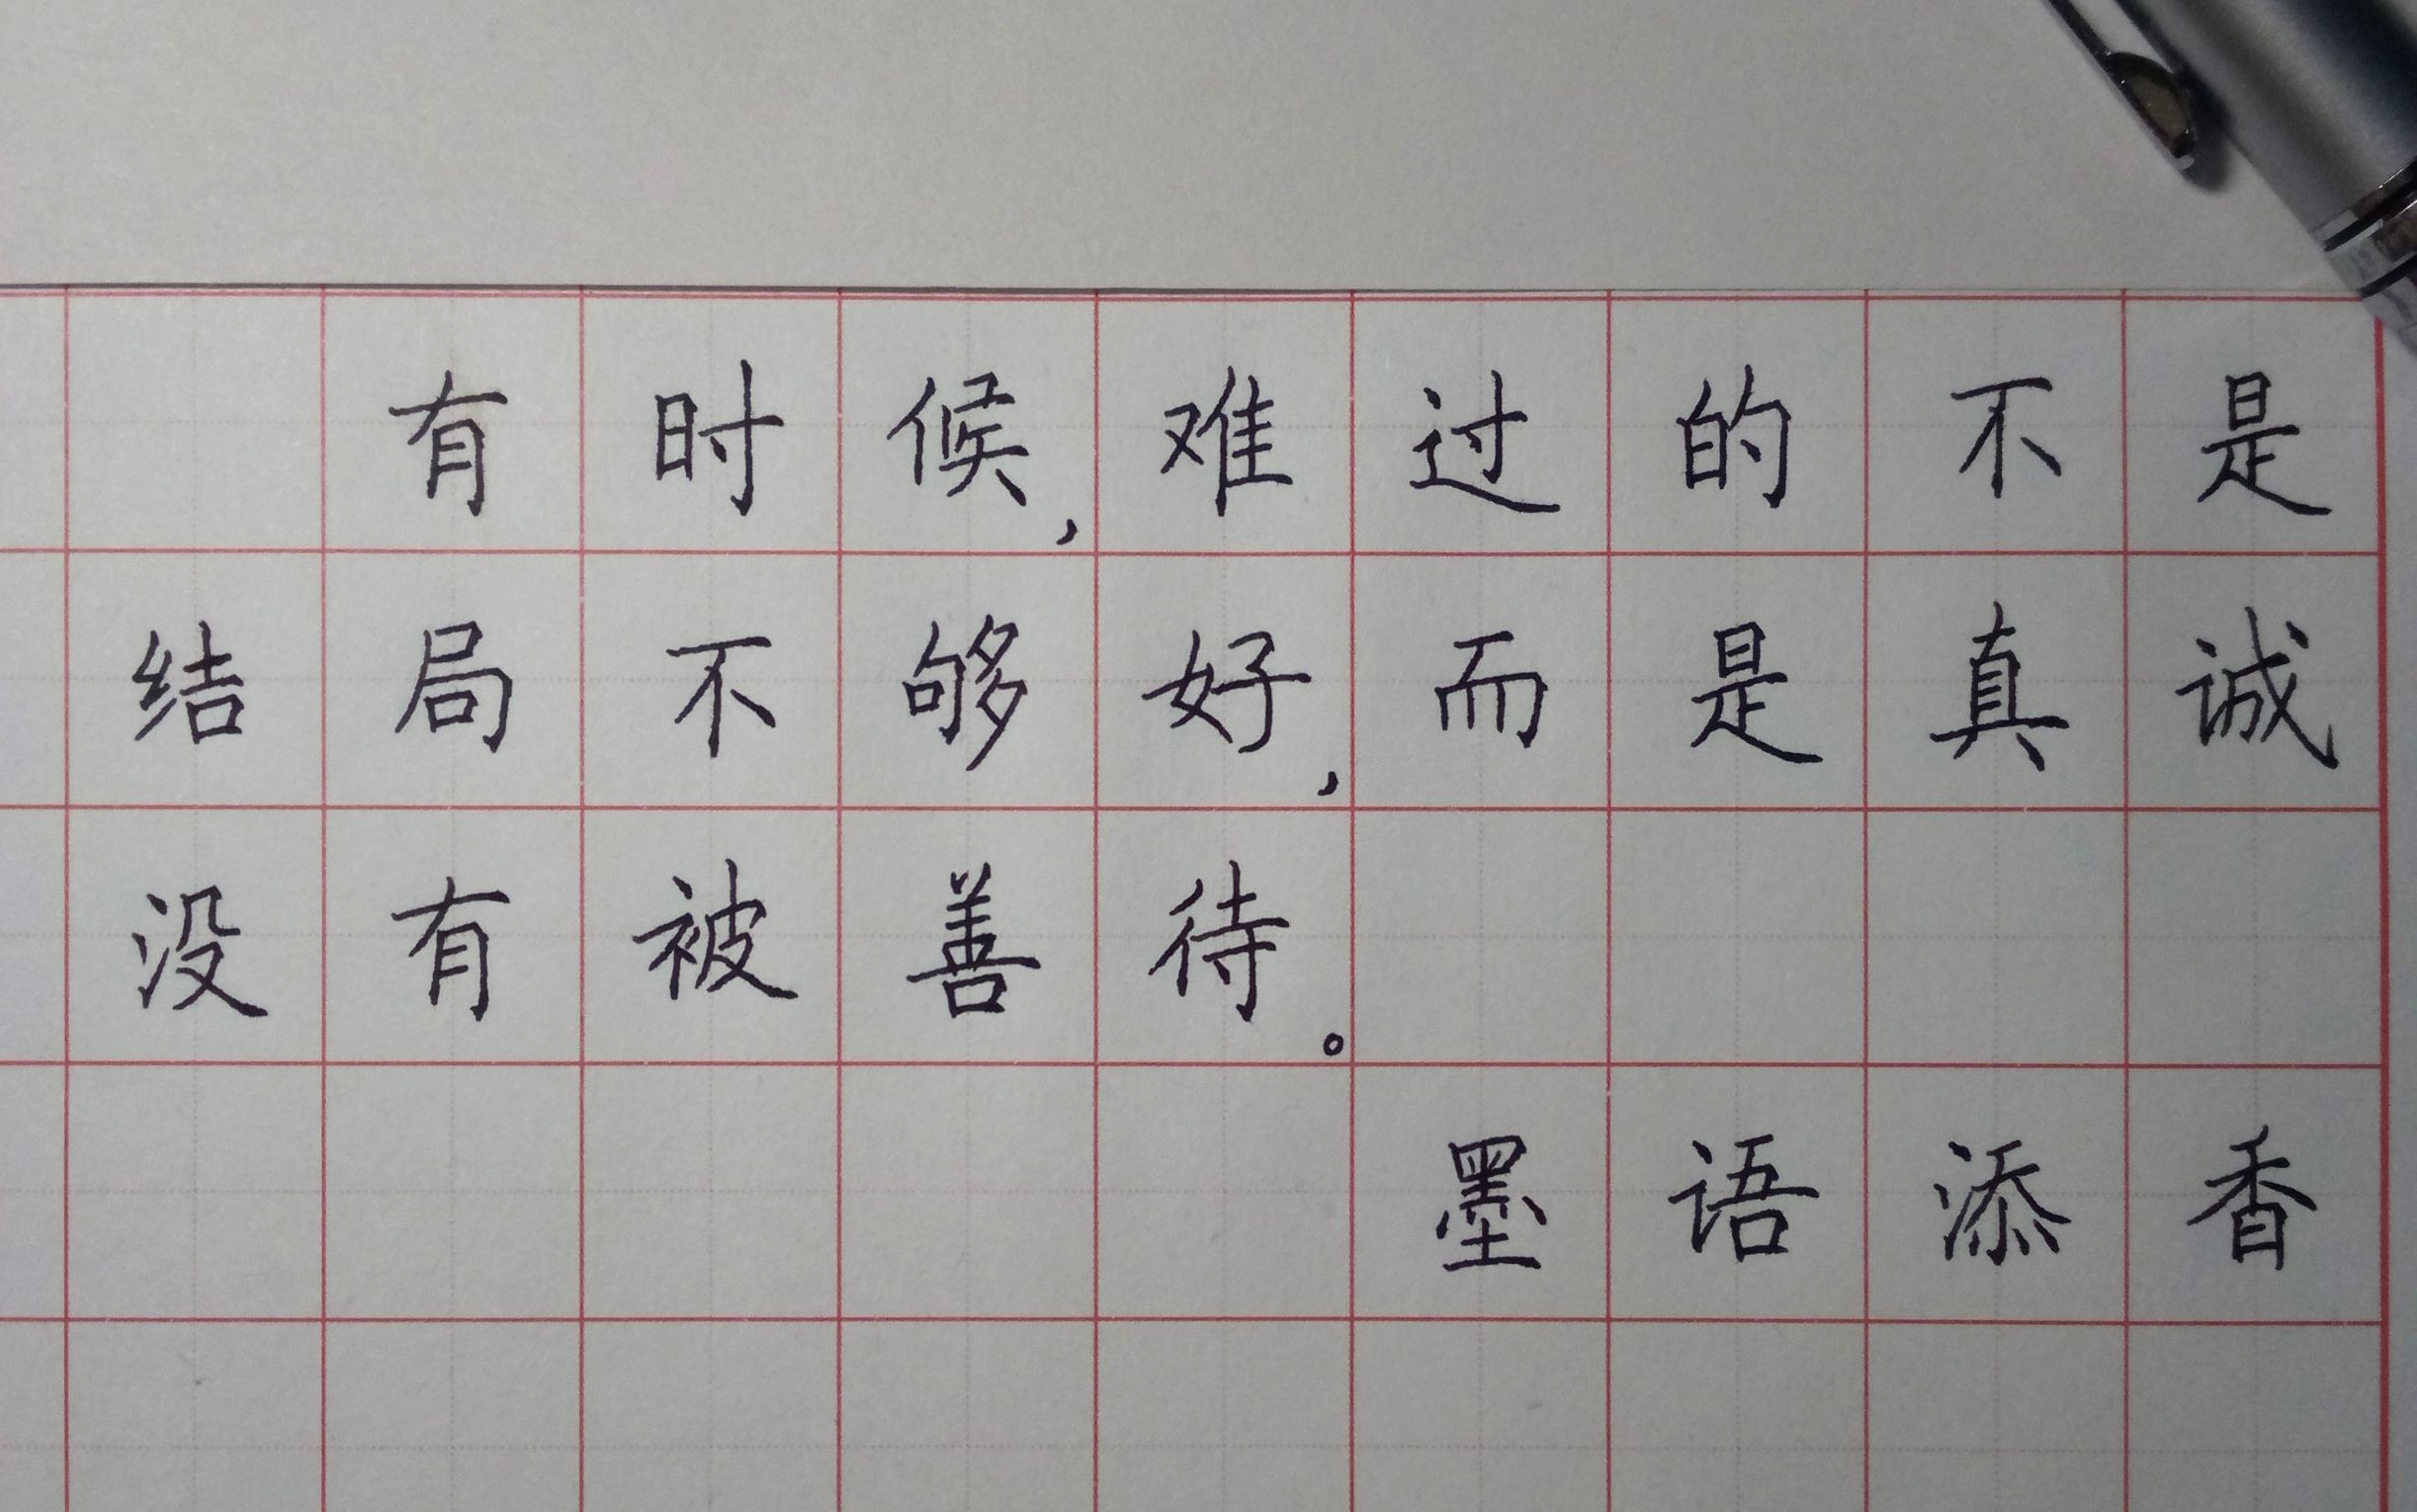 有时候,难过的不是
结局不够好,而是真诚
没有被善待。
墨语添香